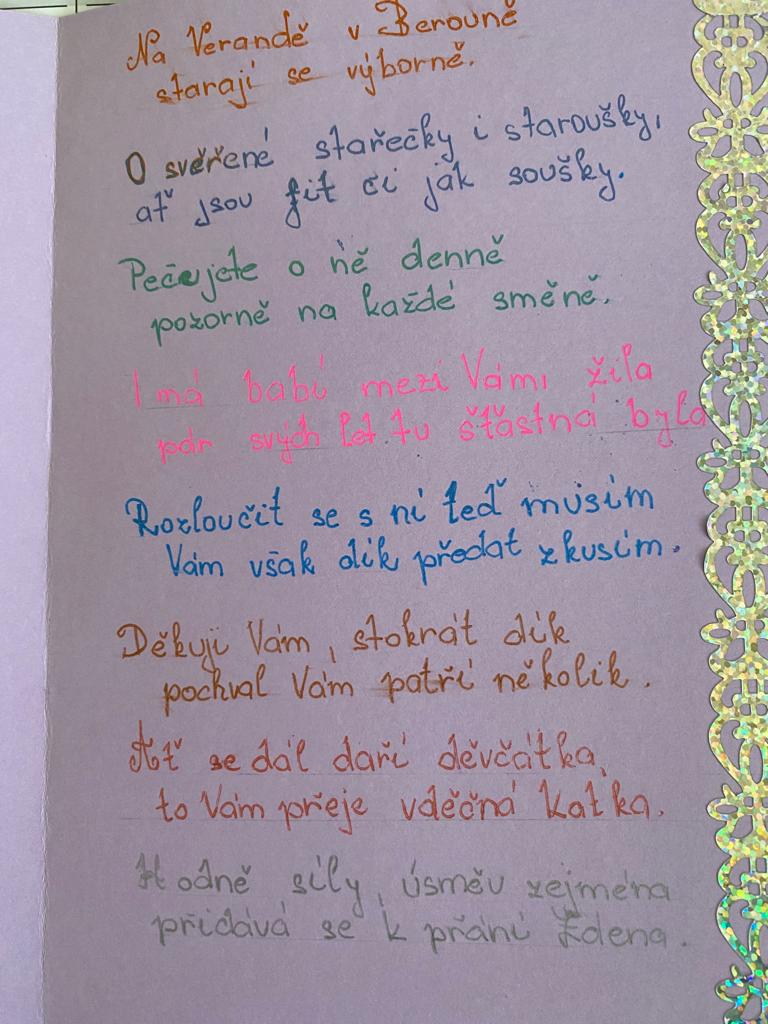 Na Verandě v Berouně
starají se výborně.
O svěřené stařečky i staroušky,
ať jsou fit či jak soušky.
Pečujete o ně denně
pozorně na každé směně.
I má babí mezi Vámi žila
pár svých let tu šťastná byla
Rozloučit se s ní teď musím
Vám však dík předat zkusím.
Děkuji Vám, stokrát dík
pochval Vám patří několik.
Ať se dál daří děvčátka,
to Vám přeje vděčná Katka.
Hodně síly, úsměv zejména
přidává se k přání Zdena.